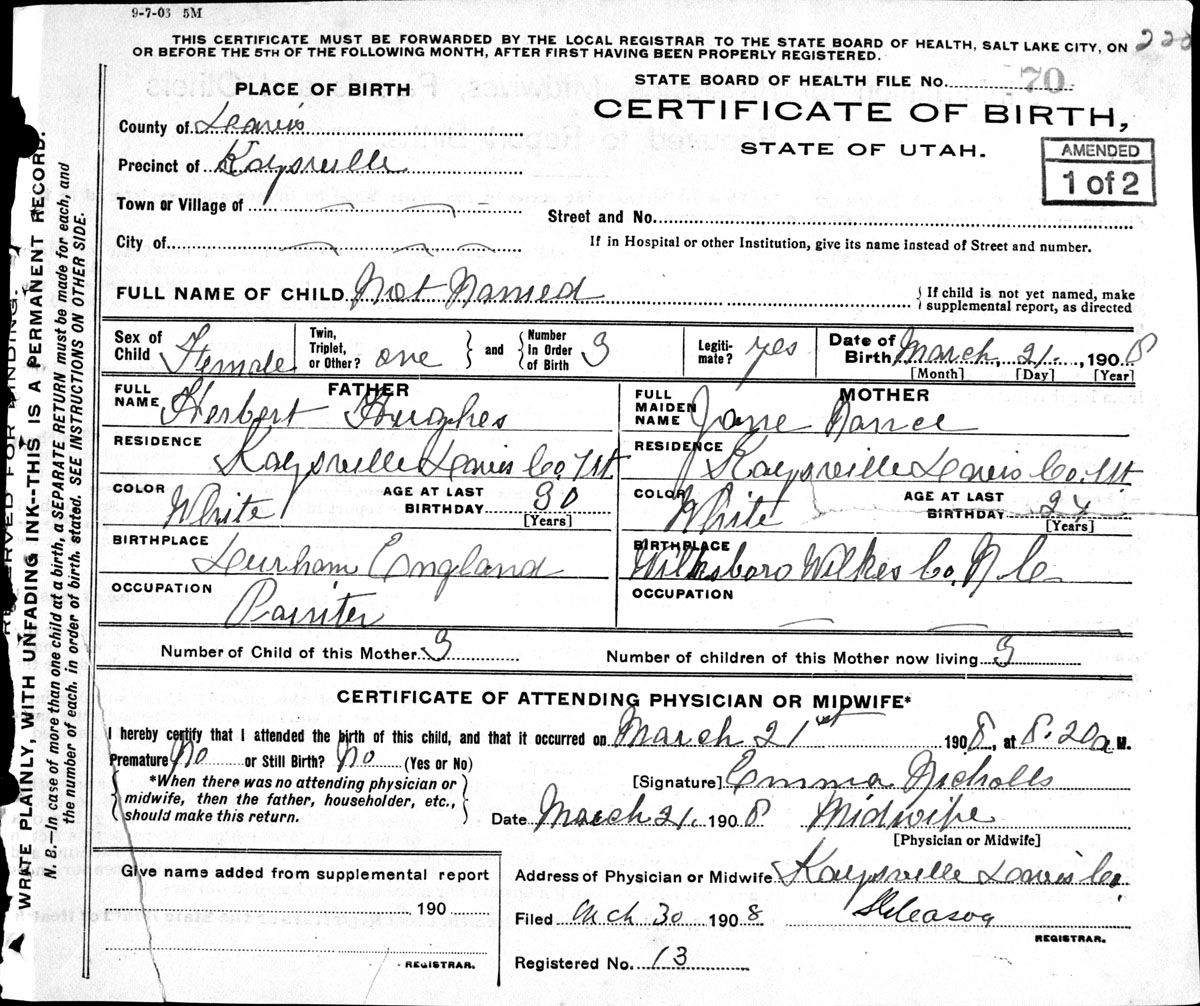 9-7-03 5M
THIS CERTIFICATE MUST BE FORWARDED BY THE LOCAL REGISTRAR TO THE STATE BOARD OF HEALTH, SALT LAKE CITY, ON
OR BEFORE THE 5TH OF THE FOLLOWING MONTH, AFTER FIRST HAVING BEEN PROPERLY REGISTERED.
STATE BOARD OF HEALTH FILE No. 70
CERTIFICATE OF BIRTH,
STATE OF UTAH.
AMENDED
1 of 2
PLACE OF BIRTH
County of Davis
Precinct of Kaysville
Town or Village of
City of
Street and No.
If in Hospital or other Institution, give its name instead of Street and number.
FULL NAME OF CHILD Not Named
If child is not yet named, make
supplemental report, as directed
Sex of Child Female
Twin, Triplet, or Other? one
and Number In Order of Birth 3
Legiti-mate? yes
Date of Birth March 21, 1908
[Month] [Day] [Year]
FATHER
FULL NAME Herbert Hughes
RESIDENCE Kaysville Davis Co. Ut
COLOR White
AGE AT LAST BIRTHDAY 30
[Years]
BIRTHPLACE Durham England
OCCUPATION Painter
MOTHER
FULL MAIDEN NAME Jane Nance
RESIDENCE Kaysville Davis Co. Ut
COLOR White
AGE AT LAST BIRTHDAY
[Years]
BIRTHPLACE Wilksboro Wilkes Co. N.C.
OCCUPATION
Number of Child of this Mother 3
Number of children of this Mother now living 3
CERTIFICATE OF ATTENDING PHYSICIAN OR MIDWIFE*
I hereby certify that I attended the birth of this child, and that it occurred on March 21st 1908, at 8:20 a M.
Premature No or Still Birth? No (Yes or No)
*When there was no attending physician or
midwife, then the father, householder, etc.,
should make this return.
[Signature] Emma Nicholls
Date March 21, 1908 Midwife
[Physician or Midwife]
Give name added from supplemental report
190
REGISTRAR.
Address of Physician or Midwife Kaysville Davis Co.
Filed Mch 30 1908
REGISTRAR.
Registered No. 13
WRITE PLAINLY, WITH UNFADING INK--THIS IS A PERMANENT RECORD.
N. B.—In case of more than one child at a birth, a SEPARATE RETURN must be made for each, and
the number of each, in order of birth, stated. SEE INSTRUCTIONS ON OTHER SIDE.